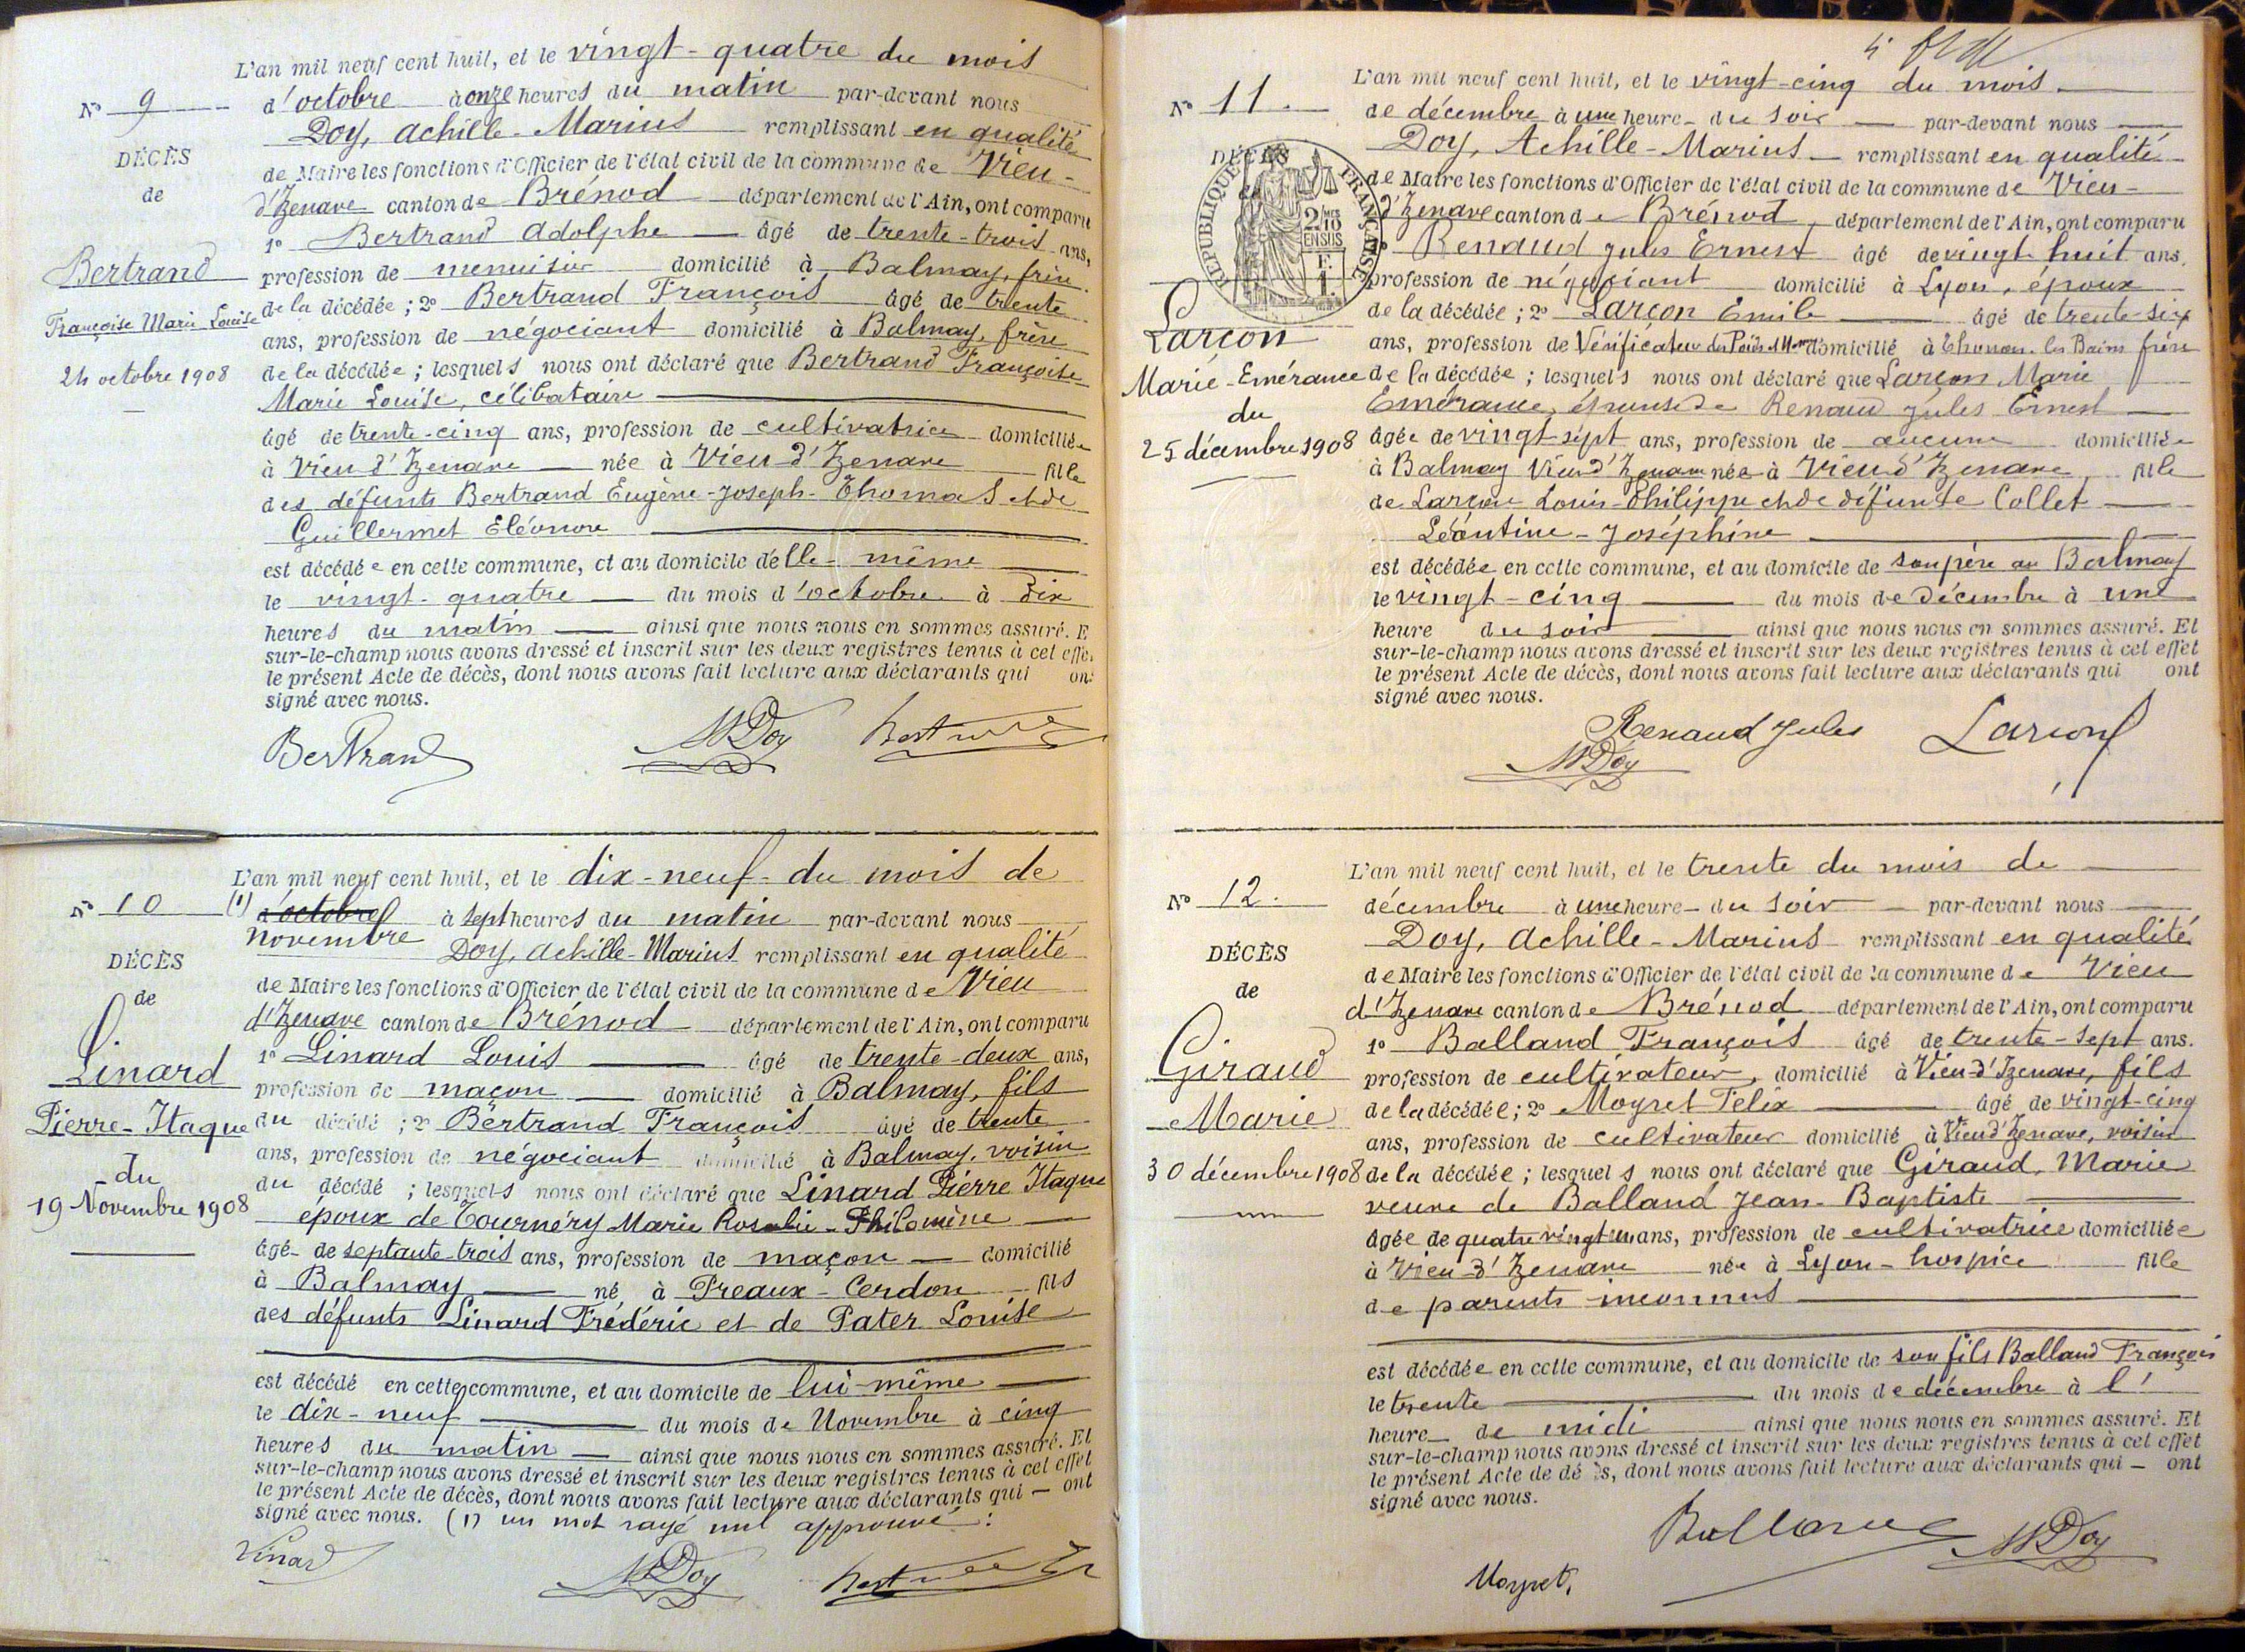 L'an mil neuf cent huit, et le vingt-quatre du mois
N° 9
d'octobre à onze heures du matin par-devant nous
Doy, Achille-Marius remplissant en qualité
DÉCÈS
de Maire les fonctions d'Officier de l'état civil de la commune de Vieu-
de
d'Izenave canton de Brénod département de l'Ain, ont comparu
1° Bertrand Adolphe âgé de trente-trois ans,
Bertrand
profession de menuisier domicilié à Balmay, frère
Françoise Marie Louise
de la décédée ; 2° Bertrand François âgé de trente
ans, profession de négociant domicilié à Balmay, frère
24 octobre 1908
de la décédée ; lesquels nous ont déclaré que Bertrand Françoise
Marie Louise, célibataire
âgé de trente-cinq ans, profession de cultivatrice domiciliée
à Vieu d'Izenave née à Vieu-d'Izenave fille
des défunts Bertrand Eugène-Joseph-Thomas et de
Guillermet Eléonore
est décédée en cette commune, et au domicile d'elle-même
le vingt-quatre du mois d'octobre à dix
heures du matin ainsi que nous nous en sommes assuré. E
sur-le-champ nous avons dressé et inscrit sur les deux registres tenus à cet effe
le présent Acte de décès, dont nous avons fait lecture aux déclarants qui on
signé avec nous.
Bertrand
MDoy
L'an mil neuf cent huit, et le dix-neuf du mois de
N° 10
(1) d'octobre à sept heures du matin par-devant nous
novembre Doy, Achille-Marius remplissant en qualité
DÉCÈS
de Maire les fonctions d'Officier de l'état civil de la commune de Vieu
de
d'Izenave canton de Brénod département de l'Ain, ont comparu
1° Linard Louis âgé de trente-deux ans,
Linard
profession de maçon domicilié à Balmay, fils
Pierre-Itaque
du décédé ; 2° Bertrand François âgé de trente
ans, profession de négociant domicilié à Balmay, voisin
du
du décédé ; lesquels nous ont déclaré que Linard Pierre Itaque
19 Novembre 1908
époux de Tournéry Marie Rosalie-Philomène
âgé de septante-trois ans, profession de maçon domicilié
à Balmay né à Preaux-Cerdon fils
des défunts Linard Frédéric et de Pater Louise
est décédé en cette commune, et au domicile de lui-même
le dix-neuf du mois de Novembre à cinq
heures du matin ainsi que nous nous en sommes assuré. Et
sur-le-champ nous avons dressé et inscrit sur les deux registres tenus à cet effet
le présent Acte de décès, dont nous avons fait lecture aux déclarants qui ont
signé avec nous. (1) un mot rayé nul approuvé :
Linard
MDoy
L'an mil neuf cent huit, et le vingt-cinq du mois
N° 11.
de décembre à une heure du soir par-devant nous
Doy, Achille-Marius remplissant en qualité
DÉCÈS
RÉPUBLIQUE FRANÇAISE
2/10
EN SUS
de Maire les fonctions d'Officier de l'état civil de la commune de Vieu-
d'Izenave canton de Brénod, département de l'Ain, ont comparu
Renaud Jules Ernest âgé de vingt-huit ans,
profession de négociant domicilié à Lyon, époux
de la décédée ; 2° Larçon Emile âgé de trente-six
Larçon
ans, profession de Vérificateur des Poids et Mesures domicilié à Thonon-les-Bains frère
Marie-Emérance
de la décédée ; lesquels nous ont déclaré que Larçon Marie
du
Emérance, épouse de Renaud Jules Ernest
25 décembre 1908
âgée de vingt-sept ans, profession de aucune domiciliée
à Balmay Vieu d'Izenave née à Vieu-d'Izenave fille
de Larçon Louis-Philippe et de défunte Collet
Léontine-Joséphine
est décédée en cette commune, et au domicile de son père au Balmay
le vingt-cinq du mois de décembre à une
heure du soir ainsi que nous nous en sommes assuré. Et
sur-le-champ nous avons dressé et inscrit sur les deux registres tenus à cet effet
le présent Acte de décès, dont nous avons fait lecture aux déclarants qui ont
signé avec nous.
Renaud Jules Larçon
MDoy
L'an mil neuf cent huit, et le trente du mois de
N° 12.
décembre à une heure du soir par-devant nous
Doy, Achille-Marius remplissant en qualité
DÉCÈS
de Maire les fonctions d'Officier de l'état civil de la commune de Vieu
de
d'Izenave canton de Brénod département de l'Ain, ont comparu
1° Balland François âgé de trente-sept ans.
Giraud
profession de cultivateur, domicilié à Vieu-d'Izenave, fils
Marie
de la décédée ; 2° Moyret Félix âgé de vingt-cinq
ans, profession de cultivateur domicilié à Vieu d'Izenave, voisin
30 décembre 1908
de la décédée ; lesquels nous ont déclaré que Giraud, Marie
veuve de Balland Jean-Baptiste
âgée de quatre vingt un ans, profession de cultivatrice domiciliée
à Vieu-d'Izenave née à Lyon-hospice fille
de parents inconnus
est décédée en cette commune, et au domicile de son fils Balland François
le trente du mois de décembre à l'
heure de midi ainsi que nous nous en sommes assuré. Et
sur-le-champ nous avons dressé et inscrit sur les deux registres tenus à cet effet
le présent Acte de dé ès, dont nous avons fait lecture aux déclarants qui ont
signé avec nous.
Balland MDoy
Moyret,